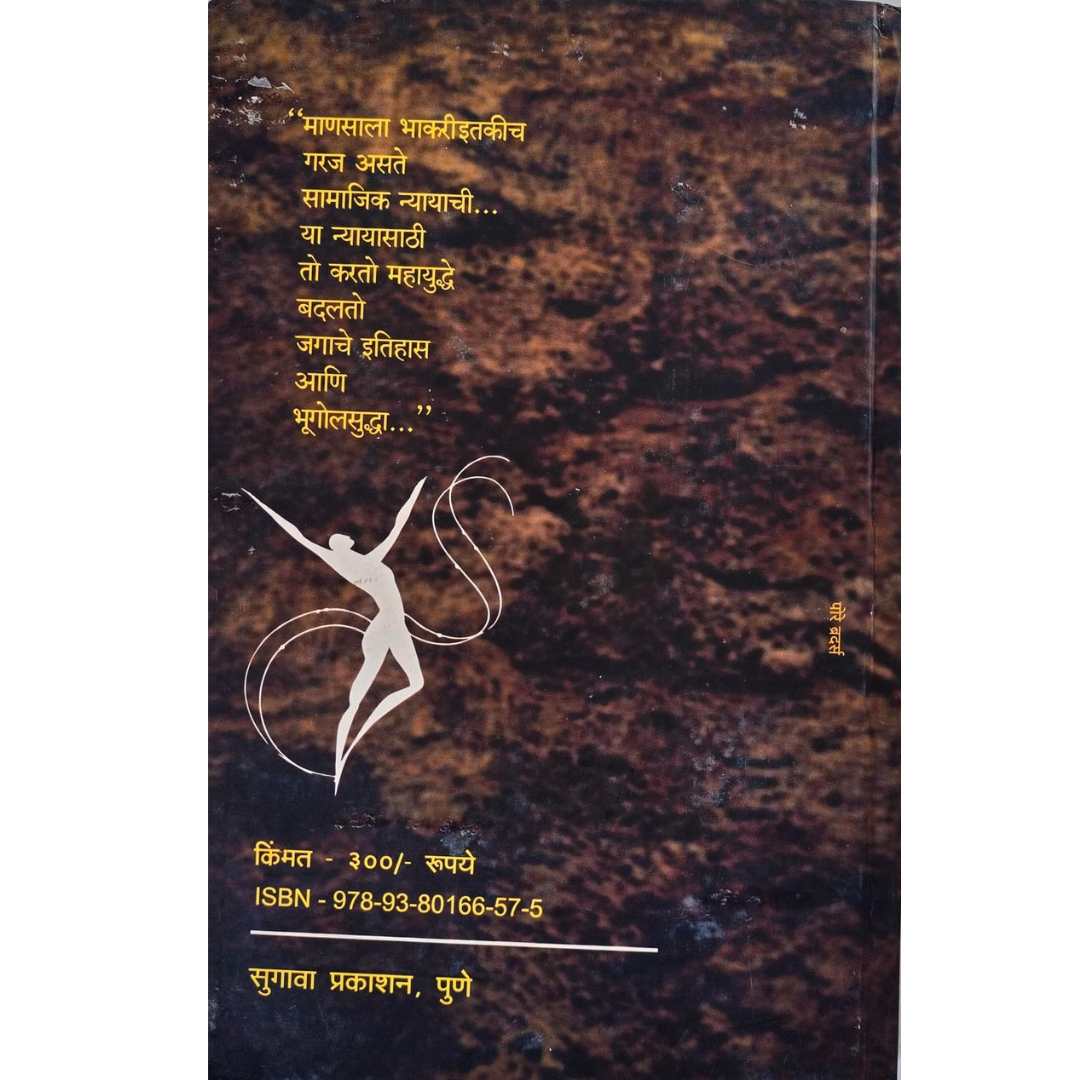 “माणसाला भाकरीइतकीच
गरज असते
सामाजिक न्यायाची...
या न्यायासाठी
तो करतो महायुद्धे
बदलतो
जगाचे इतिहास
आणि
भूगोलसुद्धा...”
पोरे ब्रदर्स
किंमत - ३००/- रूपये
ISBN - 978-93-80166-57-5
सुगावा प्रकाशन, पुणे